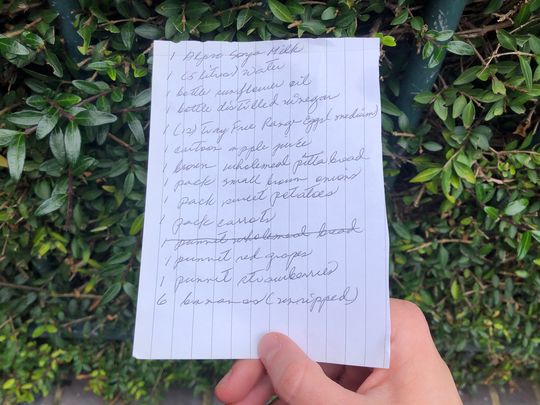 1 Alpro Soya Milk
1 (5 litres) water
1 bottle sunflower oil
1 bottle distilled vinegar
1 (12) Free Range Eggs (medium)
1 cartoon apple juice
1 brown wholemeal pitta bread
1 pack small brown onions
1 pack sweet potatoes
1 pack carrots
1 punnit wholemeal bread
1 punnit red grapes
1 punnit strawberries
6 bananas (unripped)